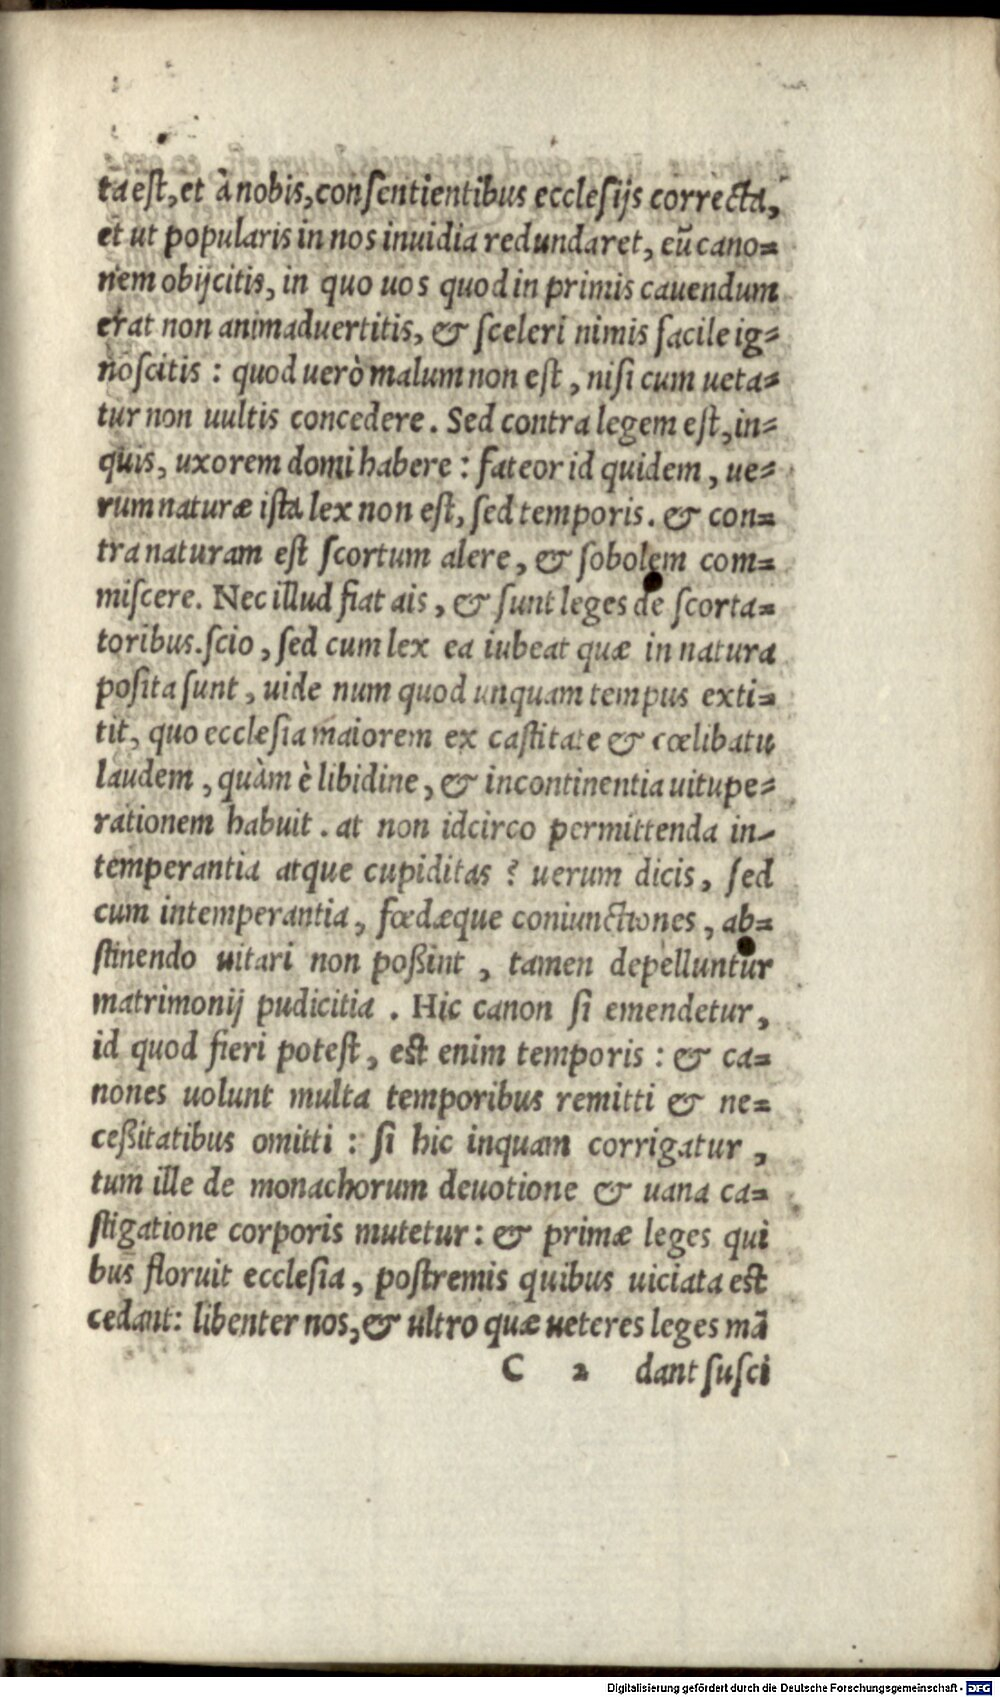 ta est, et à nobis, consentientibus ecclesijs correcta,
et ut popularis in nos inuidia redundaret, eū cano=
nem obijcitis, in quo uos quod in primis cauendum
erat non animaduertitis, & sceleri nimis facile ig=
noscitis : quod uerò malum non est, nisi cum ueta=
tur non uultis concedere. Sed contra legem est, in=
quis, uxorem domi habere : fateor id quidem, ue=
rum naturæ ista lex non est, sed temporis. & con=
tra naturam est scortum alere, & sobolem com=
miscere. Nec illud fiat ais, & sunt leges de scorta=
toribus. scio, sed cum lex ea iubeat quæ in natura
posita sunt, uide num quod unquam tempus exti=
tit, quo ecclesia maiorem ex castitate & cœlibatu
laudem, quàm è libidine, & incontinentia uitupe=
rationem habuit. at non idcirco permittenda in-
temperantia atque cupiditas ? uerum dicis, sed
cum intemperantia, fœdæque coniunctiones, ab=
stinendo uitari non poßint, tamen depelluntur
matrimonij pudicitia. Hic canon si emendetur,
id quod fieri potest, est enim temporis : & ca=
nones uolunt multa temporibus remitti & ne=
ceßitatibus omitti : si hic inquam corrigatur,
tum ille de monachorum deuotione & uana ca=
stigatione corporis mutetur: & primæ leges qui
bus floruit ecclesia, postremis quibus uiciata est
cedant: libenter nos, & ultro quæ ueteres leges mā
C 2 dant susci
Digitalisierung gefördert durch die Deutsche Forschungsgemeinschaft - DFG